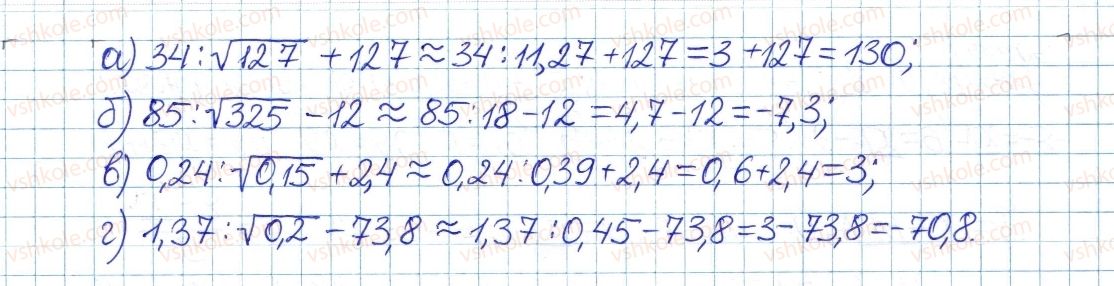 а) 34 : √127 + 127 ≈ 34 : 11,27 + 127 = 3 + 127 = 130;
б) 85 : √325 - 12 ≈ 85 : 18 - 12 = 4,7 - 12 = -7,3;
в) 0,24 : √0,15 + 2,4 ≈ 0,24 : 0,39 + 2,4 = 0,6 + 2,4 = 3;
г) 1,37 : √0,2 - 73,8 ≈ 1,37 : 0,45 - 73,8 = 3 - 73,8 = -70,8.
vshkole.com